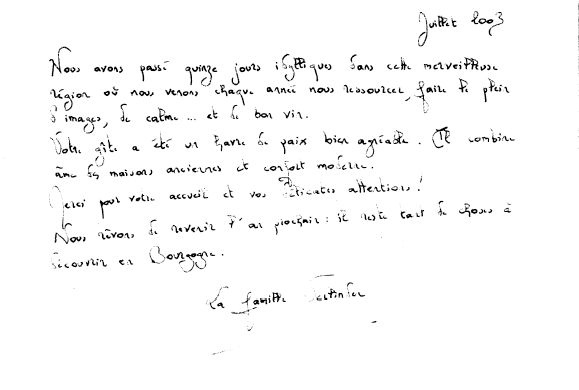 Juillet 2003
Nous avons passé quinze jours idylliques dans cette merveilleuse
région où nous venons chaque année nous ressourcer, faire le plein
d'images, de calme ... et de bon vin.
Votre gîte a été un havre de paix bien agréable. Il combine
âme des maisons anciennes et confort moderne.
Merci pour votre accueil et vos délicates attentions !
Nous rêvons de revenir l'an prochain : il reste tant de choses à
découvrir en Bourgogne.
La famille